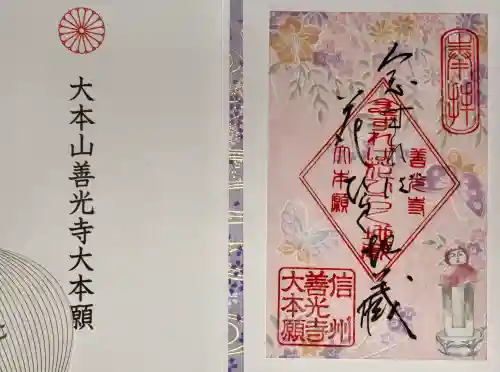 奉拝
念ずれば
花ひらく地蔵
善光寺
大本願
信州
善光寺
大本願
大本山善光寺大本願